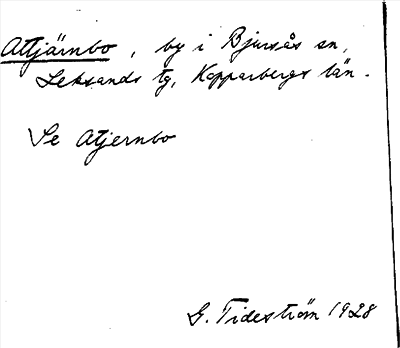 Attjärnbo, by i Bjursås sn,
Leksands tg, Kopparbergs län.
Se Atjernbo
G. Tideström 1928